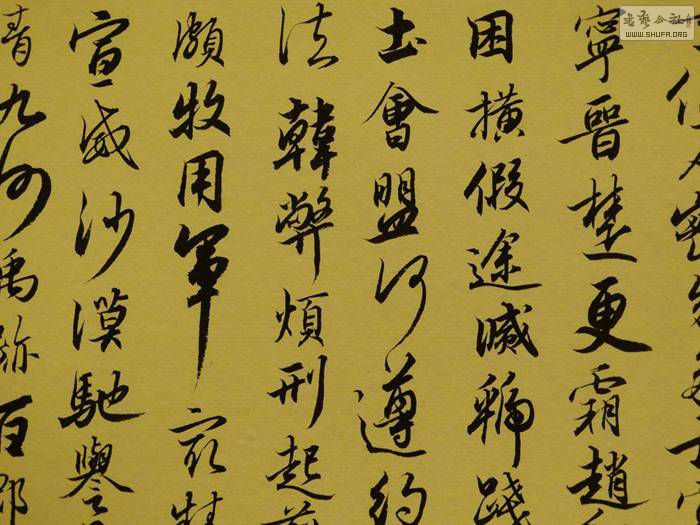 書藝公社
WWW.SHUFA.ORG
俊乂密勿多士寔
寧晉楚更霸趙
困橫假途滅虢踐
土會盟何遵約
法韓弊煩刑起翦
頗牧用軍最精
宣威沙漠馳譽
青九州禹跡百郡